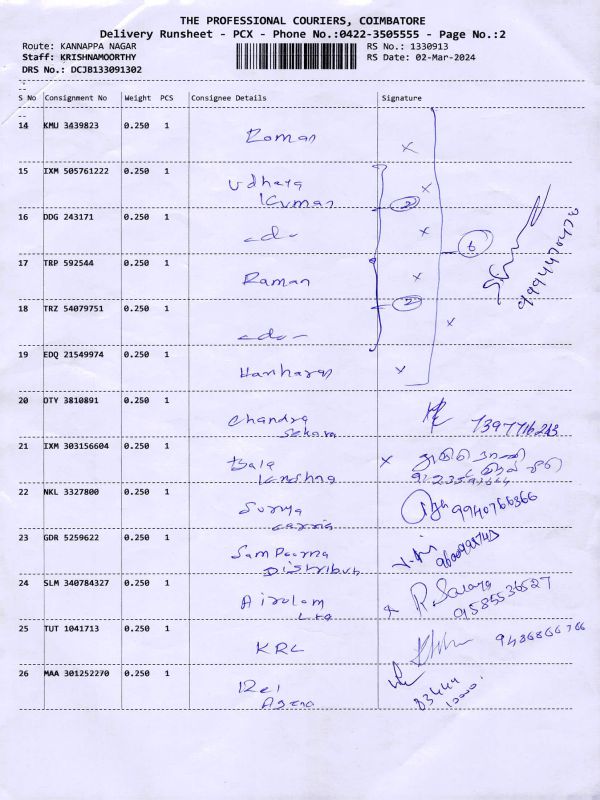 THE PROFESSIONAL COURIERS, COIMBATORE
Delivery Runsheet - PCX - Phone No.:0422-3505555 - Page No.:2
Route: KANNAPPA NAGAR
RS No.: 1330913
Staff: KRISHNAMOORTHY
RS Date: 02-Mar-2024
DRS No.: DCJB133091302
S No Consignment No Weight PCS Consignee Details Signature
14 KMU 3439823 0.250 1 Raman x
15 IXM 505761222 0.250 1 Udhaya x
Kumar
2
16 DDG 243171 0.250 1 -do- x
6
17 TRP 592544 0.250 1 Raman x
2
18 TRZ 54079751 0.250 1 -do- x
19 EDQ 21549974 0.250 1 Hariharan x
20 OTY 3810891 0.250 1 Chandra
Sekara 7397716243
21 IXM 303156604 0.250 1 Bala x
Krishna
22 NKL 3327800 0.250 1 Surya 9940766366
23 GDR 5259622 0.250 1 Sampoorna
Distributi
24 SLM 340784327 0.250 1 R. Saranya
9585536527
25 TUT 1041713 0.250 1 KRL 9486866766
26 MAA 301252270 0.250 1